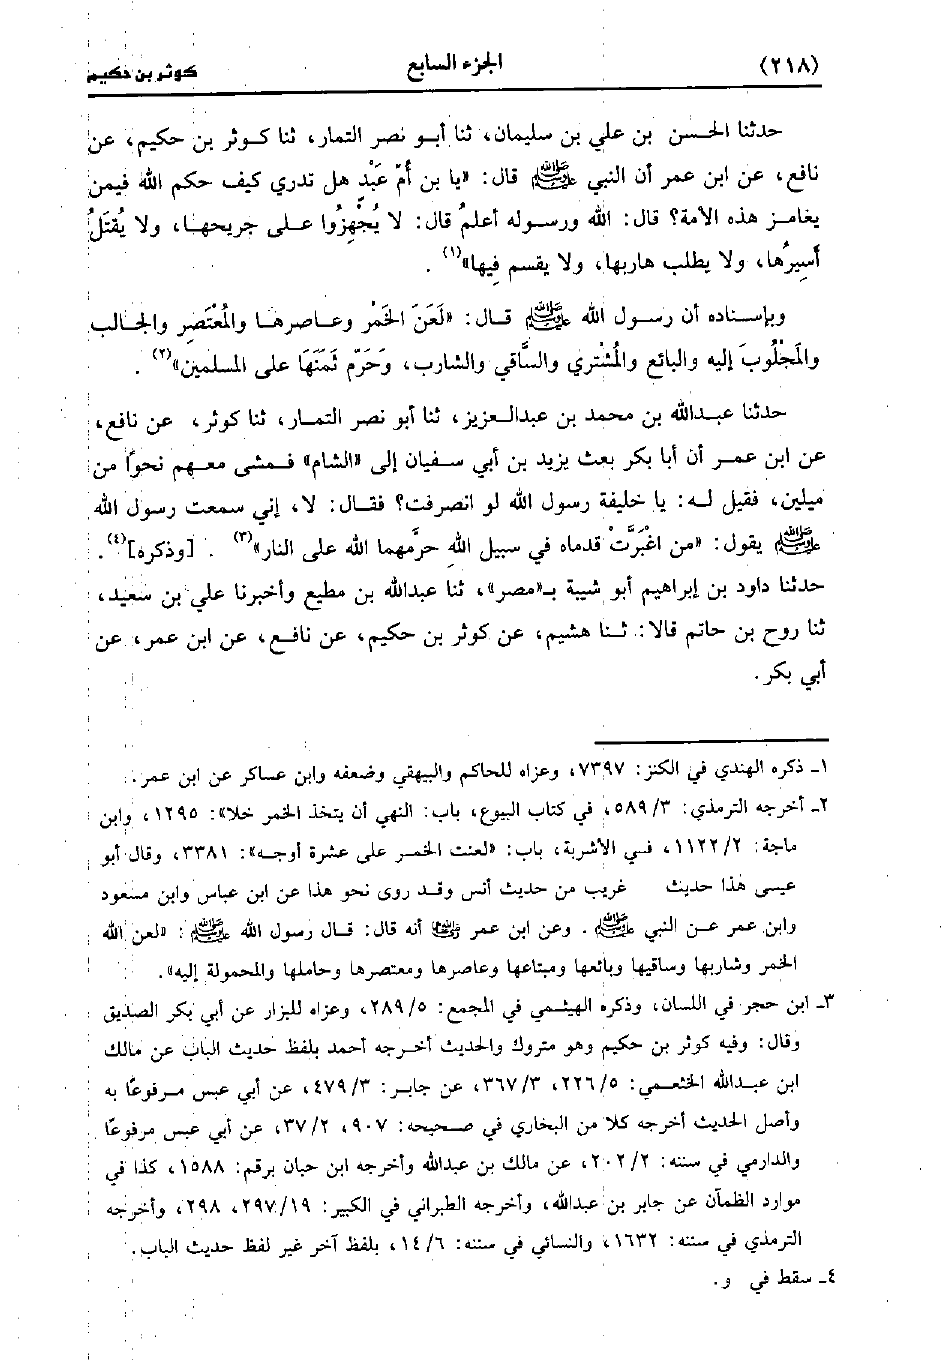 (٢١٨) الجزء السابع كوثر بن حكيم
حدثنا الحسن بن علي بن سليمان، ثنا أبو نصر التمار، ثنا كوثر بن حكيم، عن
نافع، عن ابن عمر أن النبي ﷺ قال: «يا بن أُمّ عَبْدٍ هل تدري كيف حكم الله فيمن
يغامز هذه الأمة؟ قال: الله ورسوله أعلمُ قال: لا يُجْهِزُوا على جريحها، ولا يُقتَلُ
أَسِيرُها، ولا يطلب هاربها، ولا يقسم فِيها»(١) .
وبإسناده أن رسول الله ﷺ قال: «لَعَنَ الخَمْر وعاصرها والمُعْتَصِر والجالب
والمَجْلُوبَ إليه والبائع والمُشْتري والسَّاقي والشارب، وَحَرّم ثَمَنَهَا على المسلمين»(٢) .
حدثنا عبدالله بن محمد بن عبدالعزيز، ثنا أبو نصر التمار، ثنا كوثر، عن نافع،
عن ابن عمر أن أبا بكر بعث يزيد بن أبي سفيان إلى «الشام» فمشى معهم نحوًا من
ميلين، فقيل له: يا خليفة رسول الله لو انصرفت؟ فقال: لا، إني سمعت رسول الله
ﷺ يقول: «من اغْبَرَّتْ قدماه في سبيل اللهِ حرَّمهما الله على النار»(٣) . [وذكره](٤).
حدثنا داود بن إبراهيم أبو شيبة بـ«مصر»، ثنا عبدالله بن مطيع وأخبرنا علي بن سعيد،
ثنا روح بن حاتم قالا: ثنا هشيم، عن كوثر بن حكيم، عن نافع، عن ابن عمر، عن
أبي بكر.
١ـ ذكره الهندي في الكنز: ٧٣٩٧، وعزاه للحاكم والبيهقي وضعفه وابن عساكر عن ابن عمر.
٢ـ أخرجه الترمذي: ٥٨٩/٣، في كتاب البيوع، باب: النهي أن يتخذ الخمر خلا»: ١٢٩٥، وابن
ماجة: ١١٢٢/٢، في الأشربة، باب: «لعنت الخمر على عشرة أوجه»: ٣٣٨١، وقال أبو
عيسى هذا حديث غريب من حديث أنس وقد روى نحو هذا عن ابن عباس وابن مسعود
وابن عمر عن النبي ﷺ . وعن ابن عمر رضي الله عنهما أنه قال: قال رسول الله ﷺ : «لعن الله
الخمر وشاربها وساقيها وبائعها ومبتاعها وعاصرها ومعتصرها وحاملها والمحمولة إليه».
٣ـ ابن حجر في اللسان، وذكره الهيثمي في المجمع: ٢٨٩/٥، وعزاه للبزار عن أبي بكر الصديق
وقال: وفيه كوثر بن حكيم وهو متروك والحديث أخرجه أحمد بلفظ حديث الباب عن مالك
ابن عبدالله الخثعمي: ٢٢٦/٥، ٣٦٧/٣، عن جابر: ٤٧٩/٣، عن أبي عبس مرفوعًا به
وأصل الحديث أخرجه كلا من البخاري في صحيحه: ٩٠٧، ٣٧/٢، عن أبي عبس مرفوعًا
والدارمي في سننه: ٢٠٢/٢، عن مالك بن عبدالله وأخرجه ابن حبان برقم: ١٥٨٨، كذا في
موارد الظمآن عن جابر بن عبدالله، وأخرجه الطبراني في الكبير: ٢٩٧/١٩، ٢٩٨، وأخرجه
الترمذي في سننه: ١٦٣٢، والنسائي في سننه: ١٤/٦، بلفظ آخر غير لفظ حديث الباب.
٤ـ سقط في و.